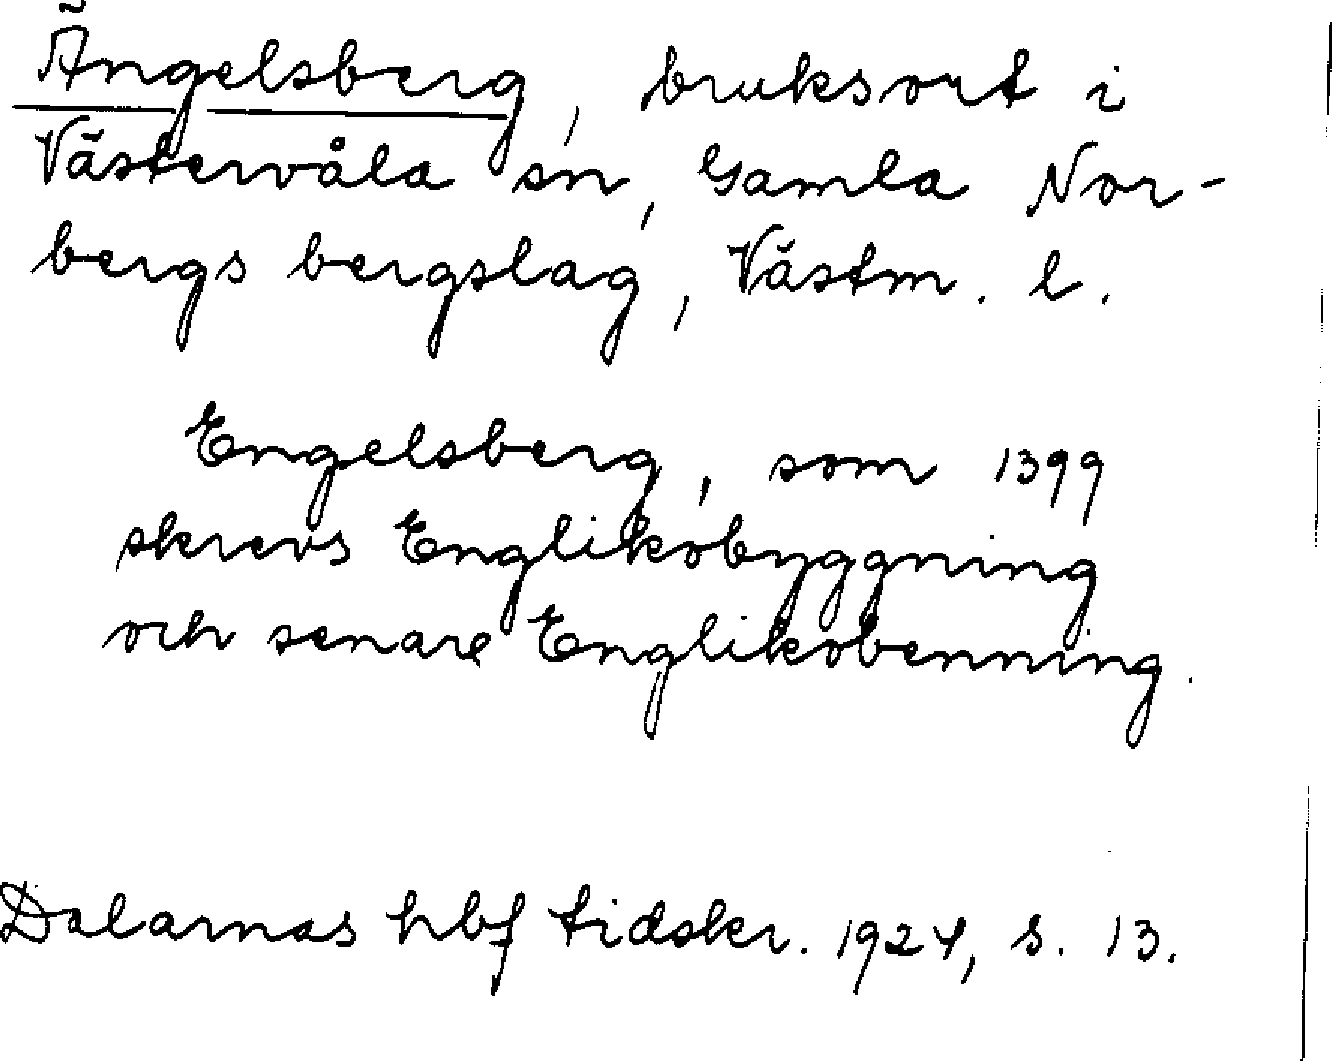 Ängelsberg, bruksort i
Västervåla sn, Gamla Nor-
bergs bergslag, Västm. l.
Engelsberg, som 1399
skrevs Englikobyggning
och senare Englikobenning.
Dalarnas hbf tidskr. 1924, s. 13.